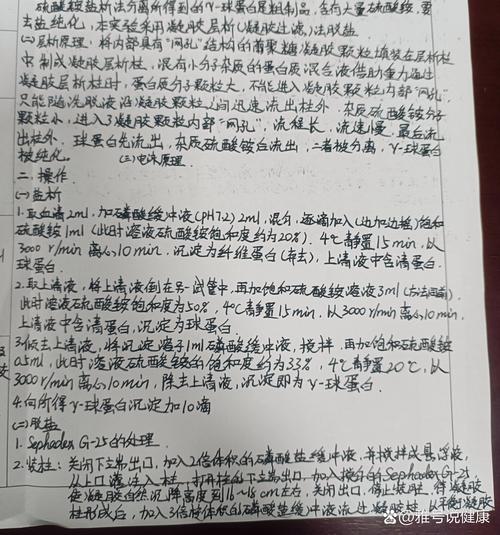 硫酸铵盐析法分离所得到的γ-球蛋白尾粗制品，含有大量硫酸铵，要
去盐纯化，本实验采用凝胶层析(凝胶过滤)法脱盐
(二)层析原理：将内部具有"网孔"结构的葡聚糖凝胶颗粒填装在层析柱
中制成凝胶层析柱，混有小分子杂质的蛋白质混合液借助重力通过
凝胶层析柱时，蛋白质分子颗粒大，不能进入凝胶颗粒内部"网孔"
只能随洗脱液沿凝胶颗粒之间迅速流出柱外，杂质硫酸铵分子
颗粒小，进入了凝胶颗粒内部"网孔"，流程长，流速慢，最后流
出柱外，球蛋白先流出，杂质硫酸铵后流出，二者被分离，γ-球蛋白
被纯化。
(三)电泳原理.
二、操作.
(一)盐析
1.取血清2ml，加磷酸盐缓冲液(pH7.2)2ml，混匀，逐滴加入(边加边摇)饱和
硫酸铵1ml(此时溶液硫酸铵饱和度约为20%)．4℃静置15min，以
3000r/min离心10min，沉淀为纤维蛋白(弃去)，上清液中含清蛋白.
球蛋白.
2.取上清液，将上清液倒在另一试管中，再加饱和硫酸铵溶液3ml(方法同前)
此时溶液硫酸铵饱和度为50%，4℃静置15min，以3000r/min离心10min，
上清液中含清蛋白，沉淀为球蛋白.
3.倾去上清液，将沉淀溶于1ml磷酸盐缓冲液，搅拌，再加饱和硫酸铵
0.5ml，此时溶液硫酸铵的饱和度约为33%，4℃静置20℃，以
3000r/min离心10min，除去上清液，沉淀即为γ-球蛋白.
4.向所得γ-球蛋白沉淀加10滴
(二)脱盐
1.Sephadex G-25的处理.
2.装柱：关闭下端出口，加入2倍体积的磷酸盐缓冲液，并搅拌成悬浮液，
从上口灌注入柱，打开柱的下端出口，加入搅匀的Sephadex G-25，
使凝胶自然沉降高度到16~18cm左右，关闭出口，停止装胶，待凝胶
柱形成后，加入3倍柱体积的磷酸盐缓冲液流过凝胶柱，以平衡凝胶
雅号说健康